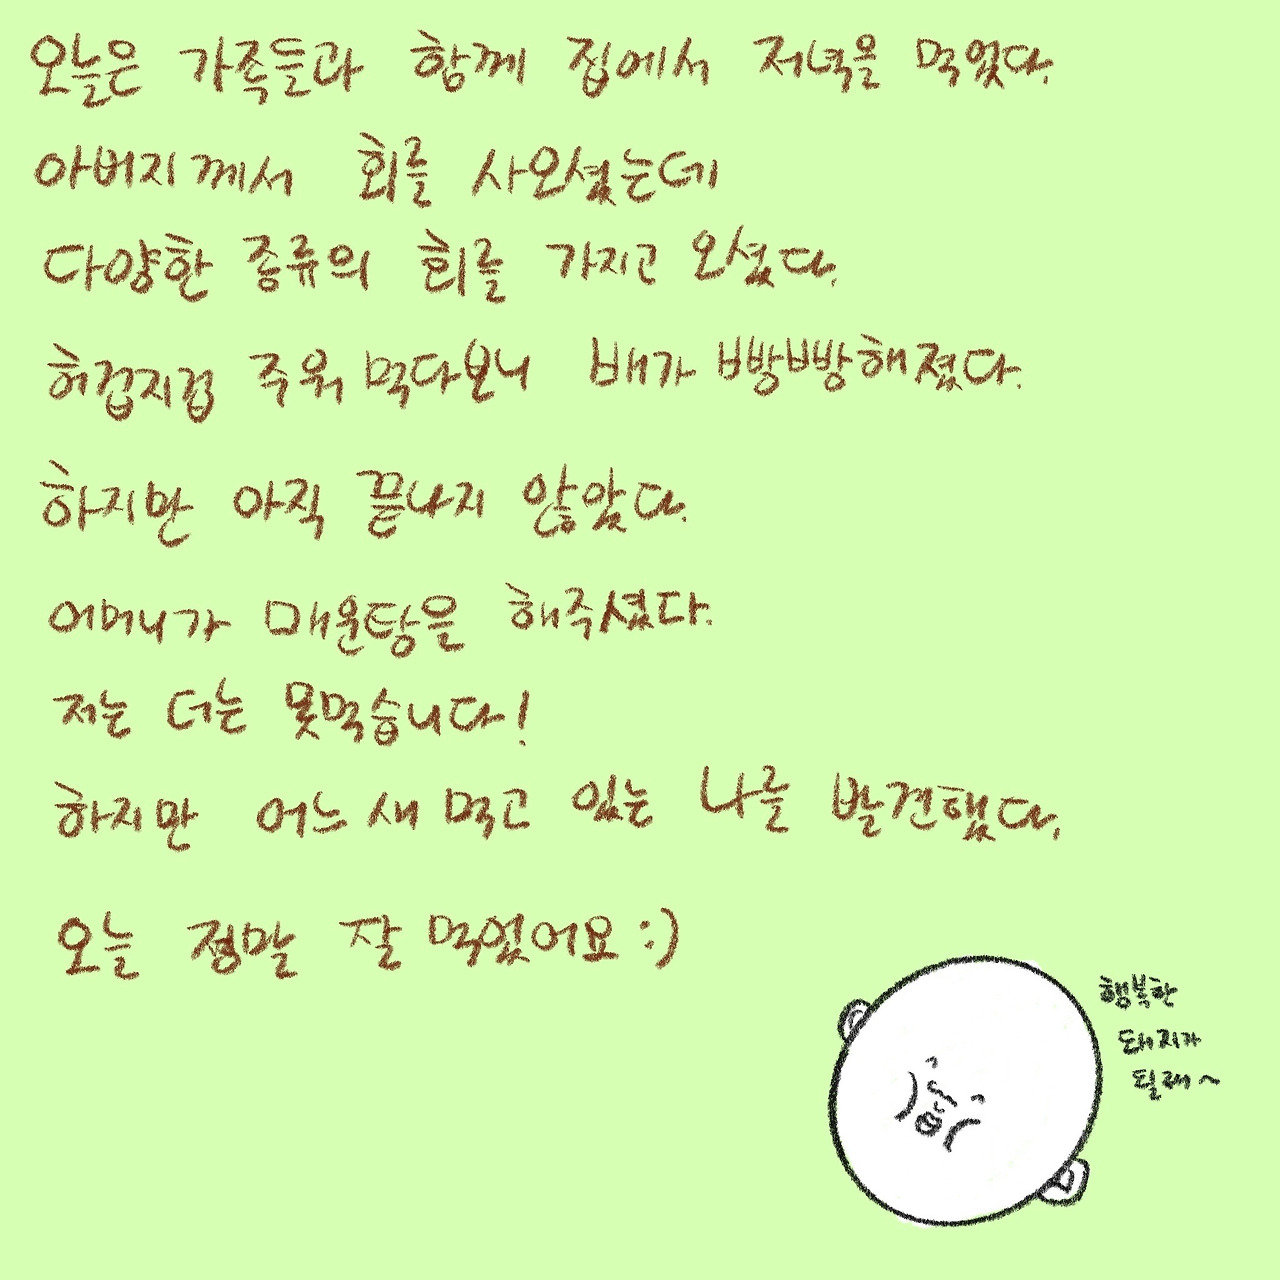 오늘은 가족들과 함께 집에서 저녁을 먹었다.
아버지께서 회를 사오셨는데
다양한 종류의 회를 가지고 오셨다.
허겁지겁 주워 먹다보니 배가 빵빵해졌다.
하지만 아직 끝나지 않았다.
어머니가 매운탕을 해주셨다.
저는 더는 못먹습니다!
하지만 어느새 먹고 있는 나를 발견했다.
오늘 정말 잘 먹었어요 :)
행복한
돼지가
될래~